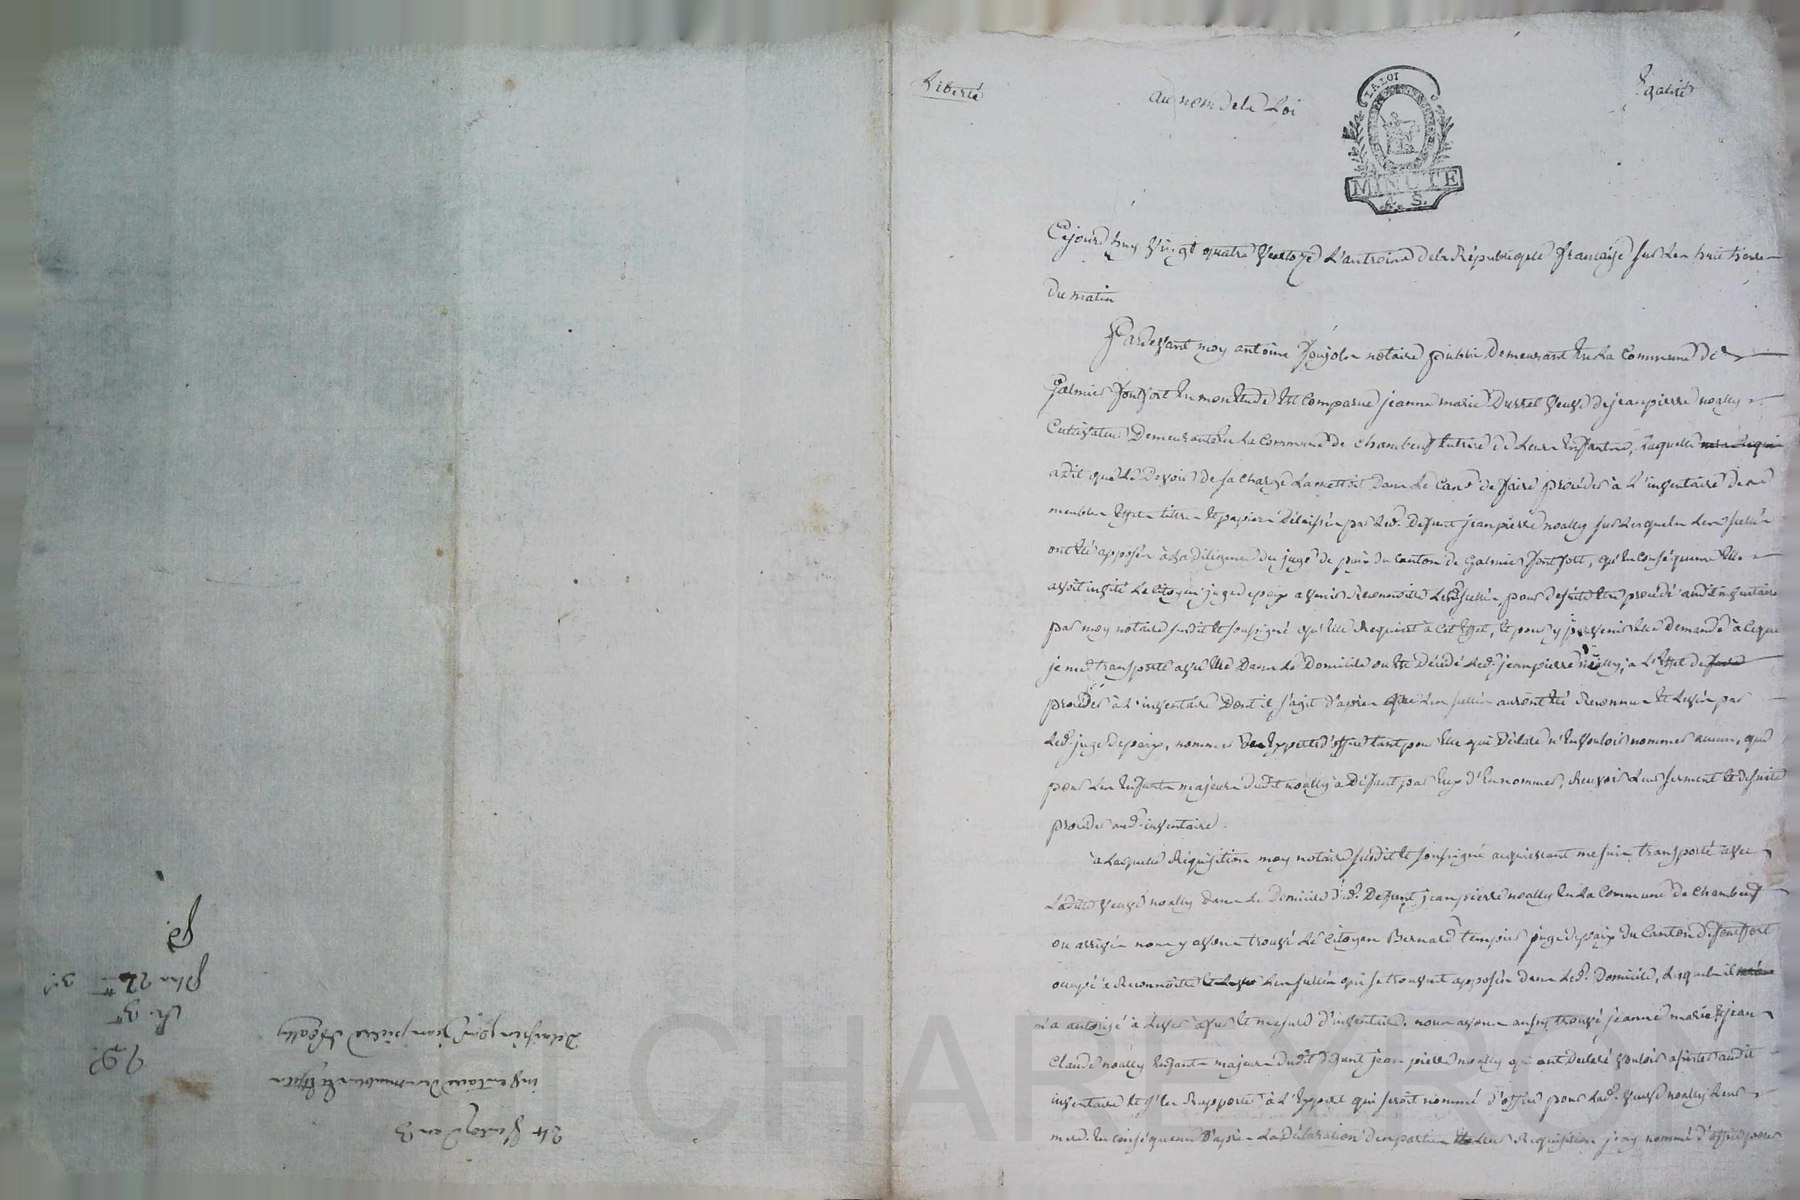 Liberté
au nom de la Loi
Egalité
LA LOI
MINUTE
4. S.
Cejourd'huy vingt quatre Ventoze L'an troize de la République française sur les huit heures
du matin
Pardevant moy antoine notaire public demeurant en la Commune de
Galmier fontfort en mon Etude est Comparue jeanne marie veuve de jean pierre noally
Cultivateur Demeurante en la Commune de chambeuf tutrice de Leurs Enfants, Laquelle
a dit que le Devoir de sa charge la mettoit dans le cas de faire procéder à L'inventaire des
meubles Effets titres et papiers délaissés par led. Defunt jean pierre noally sur Lesquels Les scellés
ont été apposés à sa diligence du juge de paix du Canton de Galmier fontfort, qu'en conséquence Elle
avoit invité Le Citoyen juge de paix a venir Reconnoitre Les scellés, pour de suite être procédé audit inventaire
par moy notaire susdit et soussigné qu'elle Requiert à cet Effet, et pour y parvenir Elle demande à ce que
je me transporte avec Elle Dans Le Domicile ou est Décédé Led. jean pierre noally, à L'Effet de
procéder à L'inventaire Dont il s'agit d'après que Les scellés auront été Reconnus et Levés par
Led. juge de paix, nommer Experts d'office tant pour Elle qui Déclare n'en vouloir nommer aucun, que
pour Les Enfants majeurs dudit noally à Deffaut par Eux d'En nommer, Recevoir Leur serment et de suite
procéder aud. inventaire.
à Laquelle Réquisition moy notaire susdit et soussigné acquiescant me suis transporté avec
Ladite veuve noally dans le Domicile dud. Defunt jean pierre noally En La Commune de Chambeuf
ou arrivés nous y avons trouvé Le Citoyen Bernard juge de paix du Canton de fontfort
occupé à Reconnoitre Les scellés qui se trouvent apposés dans Led. Domicile, Lesquels il
m'a autorisé à Lever à fur et mesure d'inventaire. nous avons aussy trouvé jeanne marie et jean
Claude noally Enfants majeurs dudit défunt jean pierre noally qui ont déclaré vouloir assister audit
inventaire et s'en Rapporter à L'Expert qui seroit nommé d'office pour Lad. veuve noally Leur
mere. En conséquence d'après La déclaration des parties et Leur Réquisition j'ay nommé d'office pour
24 Ventoze an 3
inventaire des meubles et Effets
délaissés par jean pierre Noally